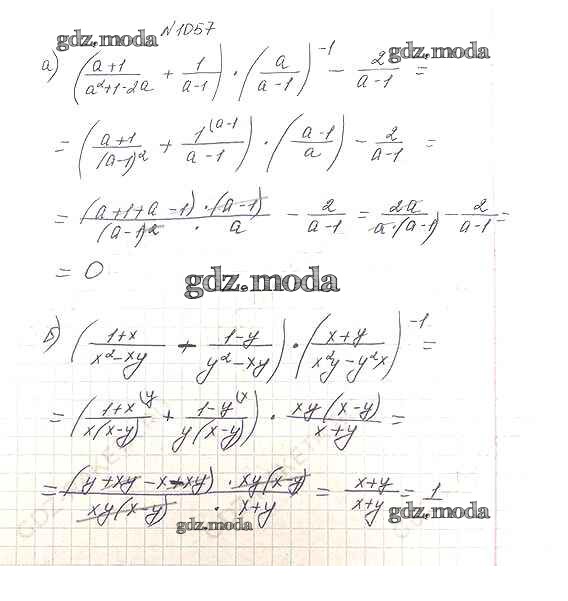 N1057
gdz.moda
gdz.moda
а) ((a+1)/(a²+1-2a) + 1/(a-1)) · (a/(a-1))^-1 - 2/(a-1) =
= ((a+1)/(a-1)² + 1^(a-1/(a-1)) · ((a-1)/a) - 2/(a-1) =
= ((a+1+a-1)·(a-1))/((a-1)²·a) - 2/(a-1) = 2a/(a·(a-1)) - 2/(a-1) =
= 0
gdz.moda
б) ((1+x)/(x²-xy) + (1-y)/(y²-xy)) · ((x+y)/(x²y-y²x))^-1 =
= ((1+x)^(y/(x(x-y)) + (1-y)^(x/(y(x-y))) · xy(x-y)/(x+y) =
= ((y+xy-x+xy)·xy(x-y))/(xy(x-y)·x+y) = (x+y)/(x+y) = 1
gdz.moda
gdz.moda